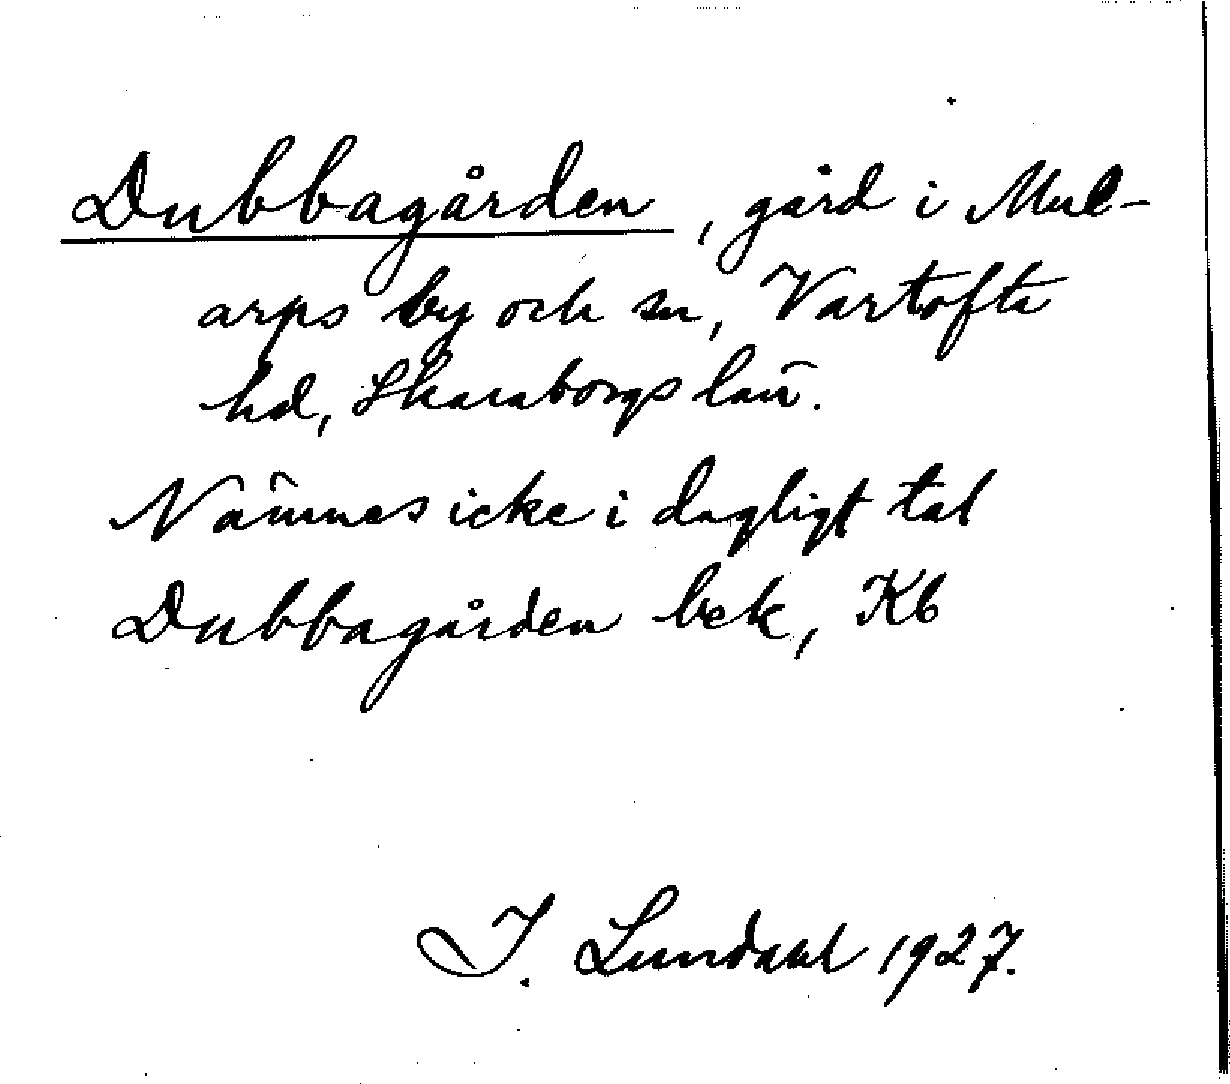 Dubbagården, gård i Mul-
arps by och sn, Vartofta
hd, Skaraborgs län.
Nämnes icke i dagligt tal
Dubbagården bek, Kb
I. Lundahl 1927.